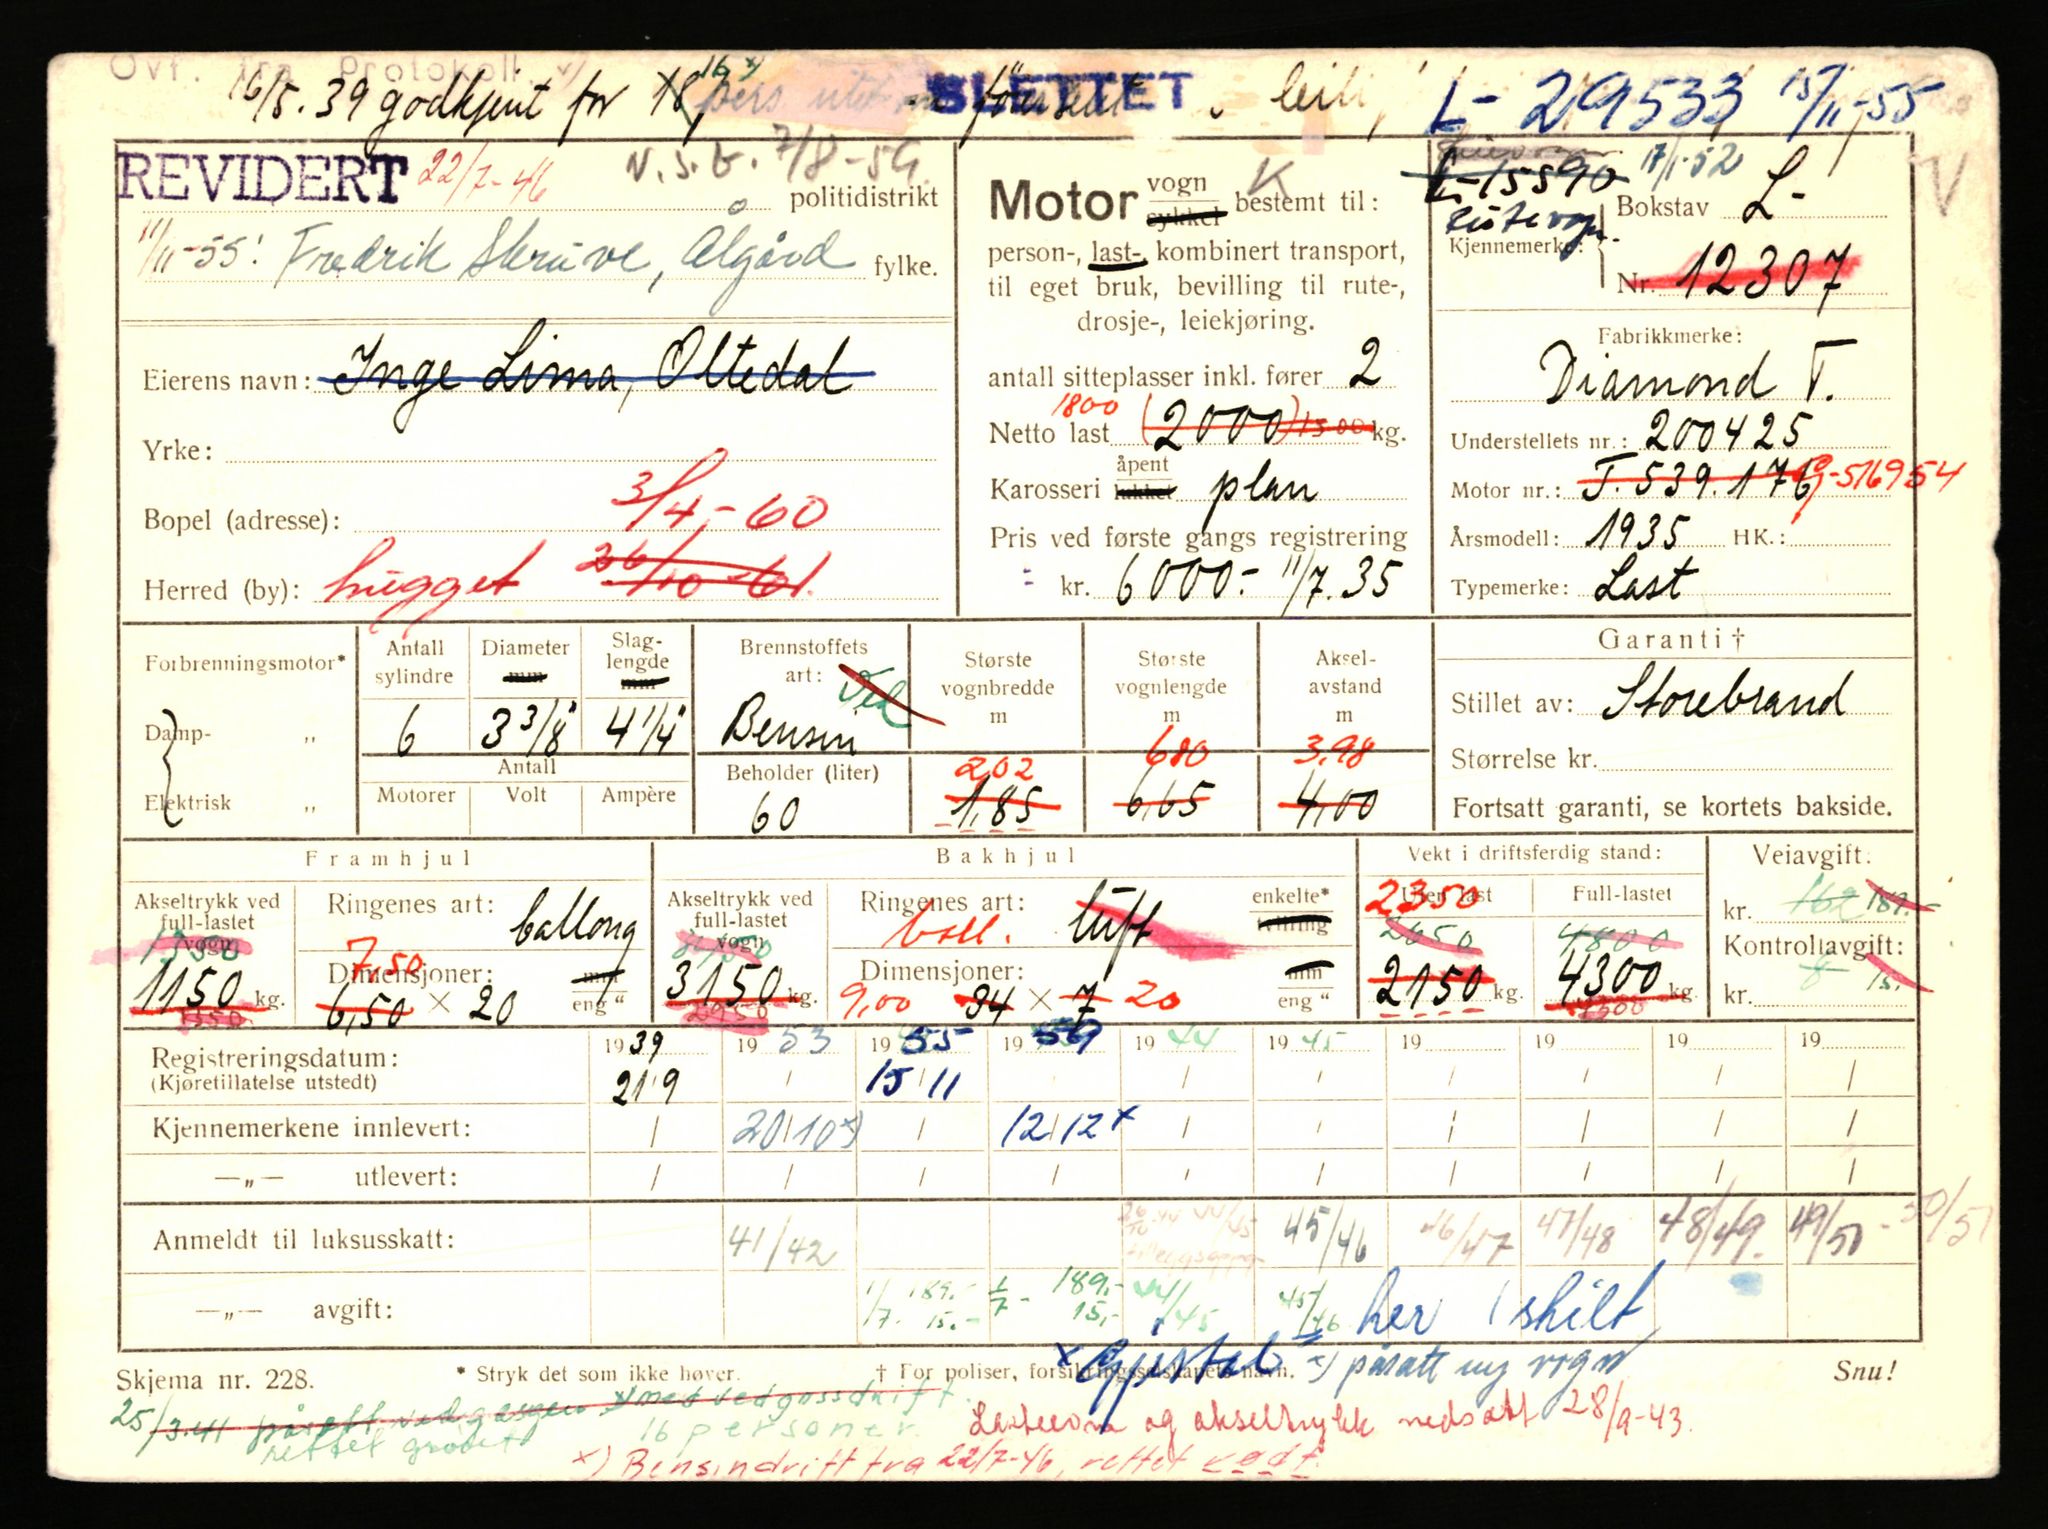 Ovf. fra Protokoll
16/5. 39 godkjent for 18 16 x) pers SLETTET leil L- 29533 15/11-55
REVIDERT 22/7-46 N.S.B. 7/8-59. politidistrikt
11/11-55: Fredrik Skruve, Ålgård fylke.
Eierens navn: Inge Lima, Oltedal
Yrke:
Bopel (adresse): 3/4-60
Herred (by): hugget 26/10-61.
Motor vogn sykkel bestemt til: K
person-, last-, kombinert transport,
til eget bruk, bevilling til rute-,
drosje-, leiekjøring.
antall sitteplasser inkl. fører 2
1800
Netto last (2000) 1500 kg.
Karosseri åpent lukket plan
Pris ved første gangs registrering
kr. 6000.- 11/7.35
L-15590 17/1-52
Listevogn.
Kjennemerke: Bokstav L-
Nr. 12307
Fabrikkmerke:
Diamond T.
Understellets nr.: 200425
Motor nr.: T.539.176 G-516954
Årsmodell: 1935 HK.:
Typemerke: Last
Forbrenningsmotor*
Damp- „
Elektrisk „
Antall sylindre 6
Diameter mm 3 3/8"
Slaglengde mm 4 1/4"
Antall
Motorer Volt Ampère
Brennstoffets art: Ved
Bensin
Beholder (liter)
60
Største vognbredde m
2,02
1,85
Største vognlengde m
680
6,65
Akselavstand m
3,98
4,00
Garanti †
Stillet av: Storebrand
Størrelse kr.
Fortsatt garanti, se kortets bakside.
Framhjul
Akseltrykk ved full-lastet vogn
1150 kg.
Ringenes art: ballong
7,50
Dimensjoner: mm
6,50 × 20 eng "
Bakhjul
Akseltrykk ved full-lastet vogn
3150 kg.
2950
Ringenes art: ball. luft enkelte* tvilling
Dimensjoner: mm
9,00 34 × 7 20 eng "
Vekt i driftsferdig stand:
Uten last Full-lastet
2350
2650 4800
2150 kg. 4300 kg.
Veiavgift:
kr. 162 189.-
Kontrollavgift:
kr. 8 15.
Registreringsdatum: 1939 19 53 19 55 19 59 19 44 19 45 19 19 19 19
(Kjøretillatelse utstedt) 21/9 / 15/11 / / / / / / /
Kjennemerkene innlevert: / 20/10 x) / 12/12 x / / / / / /
—„— utlevert: / / / / / / / / / /
Anmeldt til luksusskatt: 41/42 26/10-44 44/45 45/46 46/47 47/48 48/49. 49/50 - 50/51
—„— avgift: 1/7. 189.- 15.- 1/7 - 189.- 15,- 44/45 45/46 her 1 skilt
Skjema nr. 228. * Stryk det som ikke høver. † For poliser, forsikringsselskapets navn. x Gjestal x) påsatt ny vogn Snu!
25/3.41 påsatt vedgassgen x) med vedgassdrift.
rettet 16 personer. og akseltrykk nedsatt 28/9-43.
x) Bensindrift fra 22/7-46, rettet vedt.